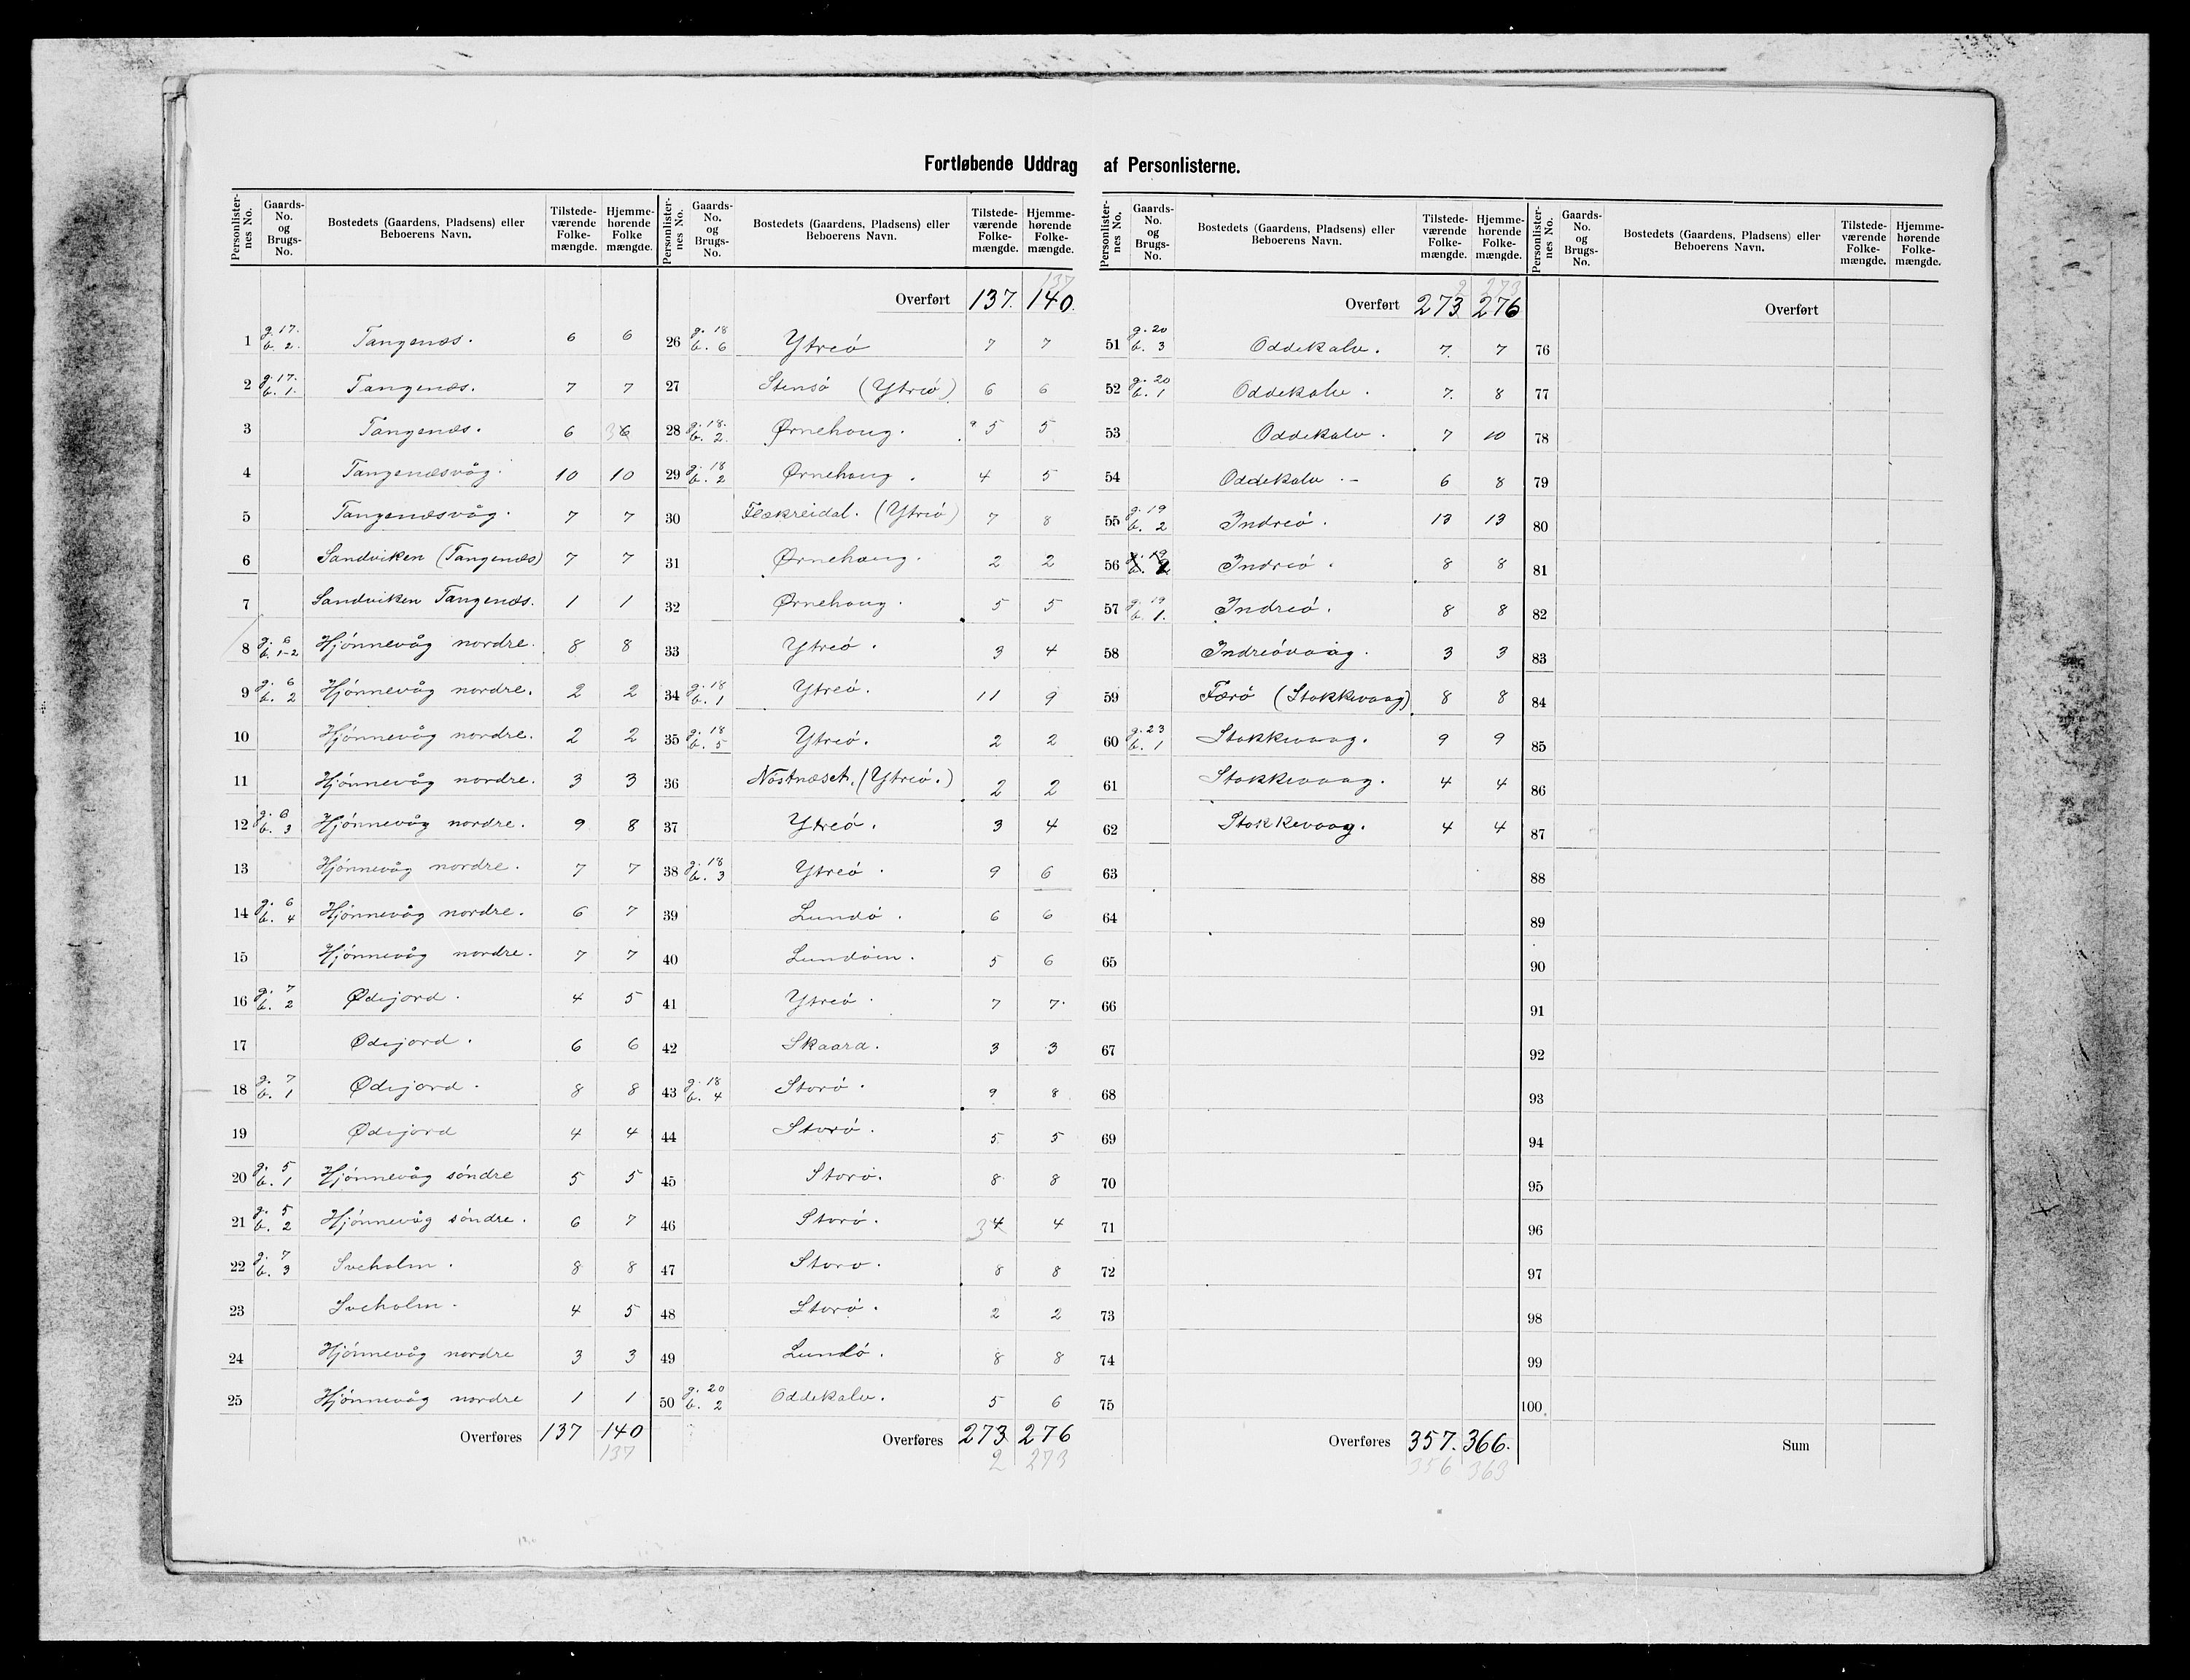 Fortløbende Uddrag af Personlisterne.
Personlister-nes No. Gaards-No. og Brugs-No. Bostedets (Gaardens, Pladsens) eller Beboerens Navn. Tilstede-værende Folke-mængde. Hjemme-hørende Folke mængde.
1 g. 17. b. 2. Tangenæs. 6 6
2 g. 17. b. 1. Tangenæs. 7 7
3 Tangenæs. 6 36
4 Tangenæsvåg. 10 10
5 Tangenæsvåg. 7 7
6 Sandviken (Tangenæs) 7 7
7 Sandviken Tangenæs. 1 1
8 g. 6 b. 1-2 Hjónnevåg nordre. 8 8
9 g. 6 b. 2 Hjónnevåg nordre. 2 2
10 Hjónnevåg nordre. 2 2
11 Hjónnevåg nordre. 3 3
12 g. 6 b. 3 Hjónnevåg nordre. 9 8
13 Hjónnevåg nordre. 7 7
14 g. 6 b. 4 Hjónnevåg nordre. 6 7
15 Hjónnevåg nordre. 7 7
16 g. 7 b. 2 Ødejord. 4 5
17 Ødejord. 6 6
18 g. 7 b. 1 Ødejord. 8 8
19 Ødejord 4 4
20 g. 5 b. 1 Hjónnevåg sóndre 5 5
21 g. 5 b. 2 Hjónnevåg sóndre. 6 7
22 g. 7 b. 3 Sveholm. 8 8
23 Sveholm. 4 5
24 Hjónnevåg nordre 3 3
25 Hjónnevåg nordre 1 1
Overføres 137 140
137
Personlister-nes No. Gaards-No. og Brugs-No. Bostedets (Gaardens, Pladsens) eller Beboerens Navn. Tilstede-værende Folke-mængde. Hjemme-hørende Folke-mængde.
137
Overført 137. 140.
26 g. 18 b. 6 Ytreó 7 7
27 Stensó (Ytreó) 6 6
28 g. 18. b. 2. Ørnehoug. 5 5
29 g. 18 b. 2 Ørnehoug. 4 5
30 Flækreidal. (Ytreó) 7 8
31 Ørnehoug. 2 2
32 Ørnehoug. 5 5
33 Ytreó. 3 4
34 g. 18 b. 1 Ytreó. 11 9
35 g. 18 b. 5 Ytreó. 2 2
36 Nóstnæset. (Ytreó.) 2 2
37 Ytreó. 3 4
38 g. 18 b. 3 Ytreó. 9 6
39 Lundó. 6 6
40 Lundóen. 5 6
41 Ytreó. 7 7.
42 Skaara. 3 3
43 g. 18 b. 4 Storó. 9 8
44 Storó. 5 5
45 Storó. 8 8
46 Storó. 34 4
47 Storo. 8 8
48 Storó. 2 2
49 Lundó. 8 8
50 g. 20 b. 2 Oddekalv. 5 6
Overføres 273 276
2 273
Personlister-nes No. Gaards-No. og Brugs-No. Bostedets (Gaardens, Pladsens) eller Beboerens Navn. Tilstede-værende Folke-mængde. Hjemme-hørende Folke-mængde.
2 273
Overført 273 276
51 g. 20 b. 3 Oddekalv. 7. 7
52 g. 20 b. 1 Oddekalv. 7. 8
53 Oddekalv. 7 10
54 Oddekalv. - 6 8
55 g. 19 b. 2 Indreó. 13 13
56 g. 19 b. 2 Indreó. 8 8
57 g. 19 b. 1. Indreó. 8 8
58 Indreóvaag. 3 3
59 Færó (Stokkevaag) 8 8
60 g. 23 b. 1 Stokkevaag. 9 9
61 Stokkevaag. 4 4
62 Stokkevaag. 4 4
63
64
65
66
67
68
69
70
71
72
73
74
75
Overføres 357. 366.
356 363
Personlister-nes No. Gaards-No. og Brugs-No. Bostedets (Gaardens, Pladsens) eller Beboerens Navn. Tilstede-værende Folke-mængde. Hjemme-hørende Folke-mængde.
Overført
76
77
78
79
80
81
82
83
84
85
86
87
88
89
90
91
92
93
94
95
96
97
98
99
100
Sum